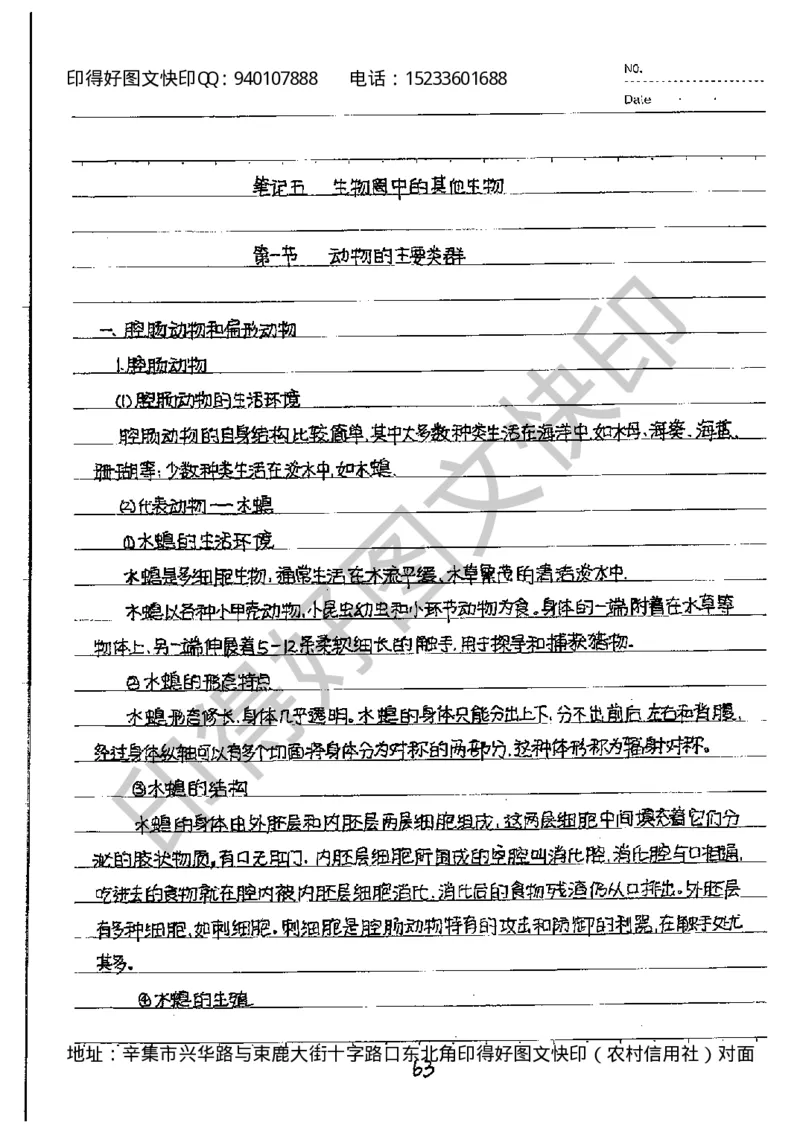 印得好图文快印QQ：940107888 电话：15233601688
NO.
Date
笔记五 生物圈中的其他生物
第一节 动物的主要类群
一、腔肠动物和扁形动物
1.腔肠动物
(1)腔肠动物的生活环境
腔肠动物的自身结构比较简单,其中大多数种类生活在海洋中,如水母、海葵、海蜇、
珊瑚等；少数种类生活在淡水中,如水螅.
(2)代表动物——水螅
①水螅的生活环境
水螅是多细胞生物,通常生活在水流平缓、水草繁茂的清洁淡水中.
水螅以各种小甲壳动物,小昆虫幼虫和小环节动物为食。身体的一端附着在水草等
物体上,另一端伸展着5-12条柔软细长的触手,用于探寻和捕获猎物。
②水螅的形态特点
水螅形态修长,身体几乎透明。水螅的身体只能分出上下,分不出前后、左右和背腹,
经过身体纵轴可以有多个切面将身体分为对称的两部分,这种体形称为辐射对称。
③水螅的结构
水螅的身体由外胚层和内胚层两层细胞组成,这两层细胞中间填充着它们分
泌的胶状物质,有口无肛门.内胚层细胞所围成的空腔叫消化腔,消化腔与口相通,
吃进去的食物就在腔内被内胚层细胞消化,消化后的食物残渣仍从口排出。外胚层
有多种细胞,如刺细胞。刺细胞是腔肠动物特有的攻击和防御的利器,在触手处尤
其多。
④水螅的生殖
地址：辛集市兴华路与束鹿大街十字路口东北角印得好图文快印（农村信用社）对面
63
印得好图文快印